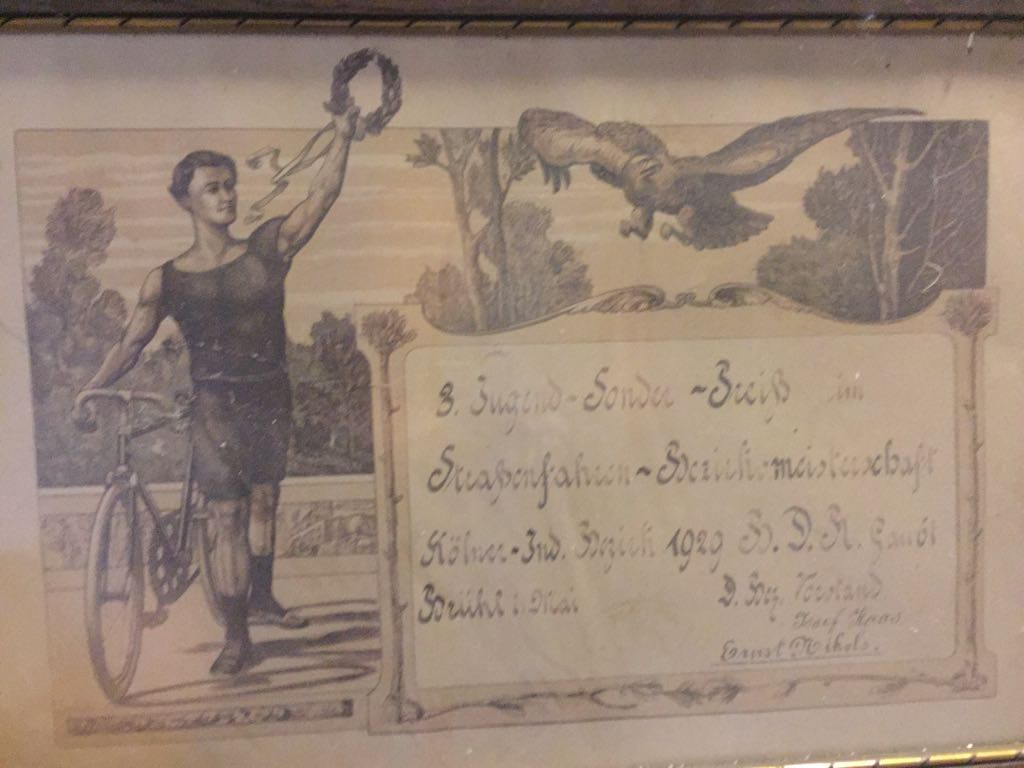 3. Jugend-Sonder-Preiß im
Straßenfahren-Bezirksmeisterschaft
Kölner-Ind. Bezirk 1929 B. D. R. Gau
Brühl i. Mai
D. Bez. Vorstand
Josef Haas
Ernst